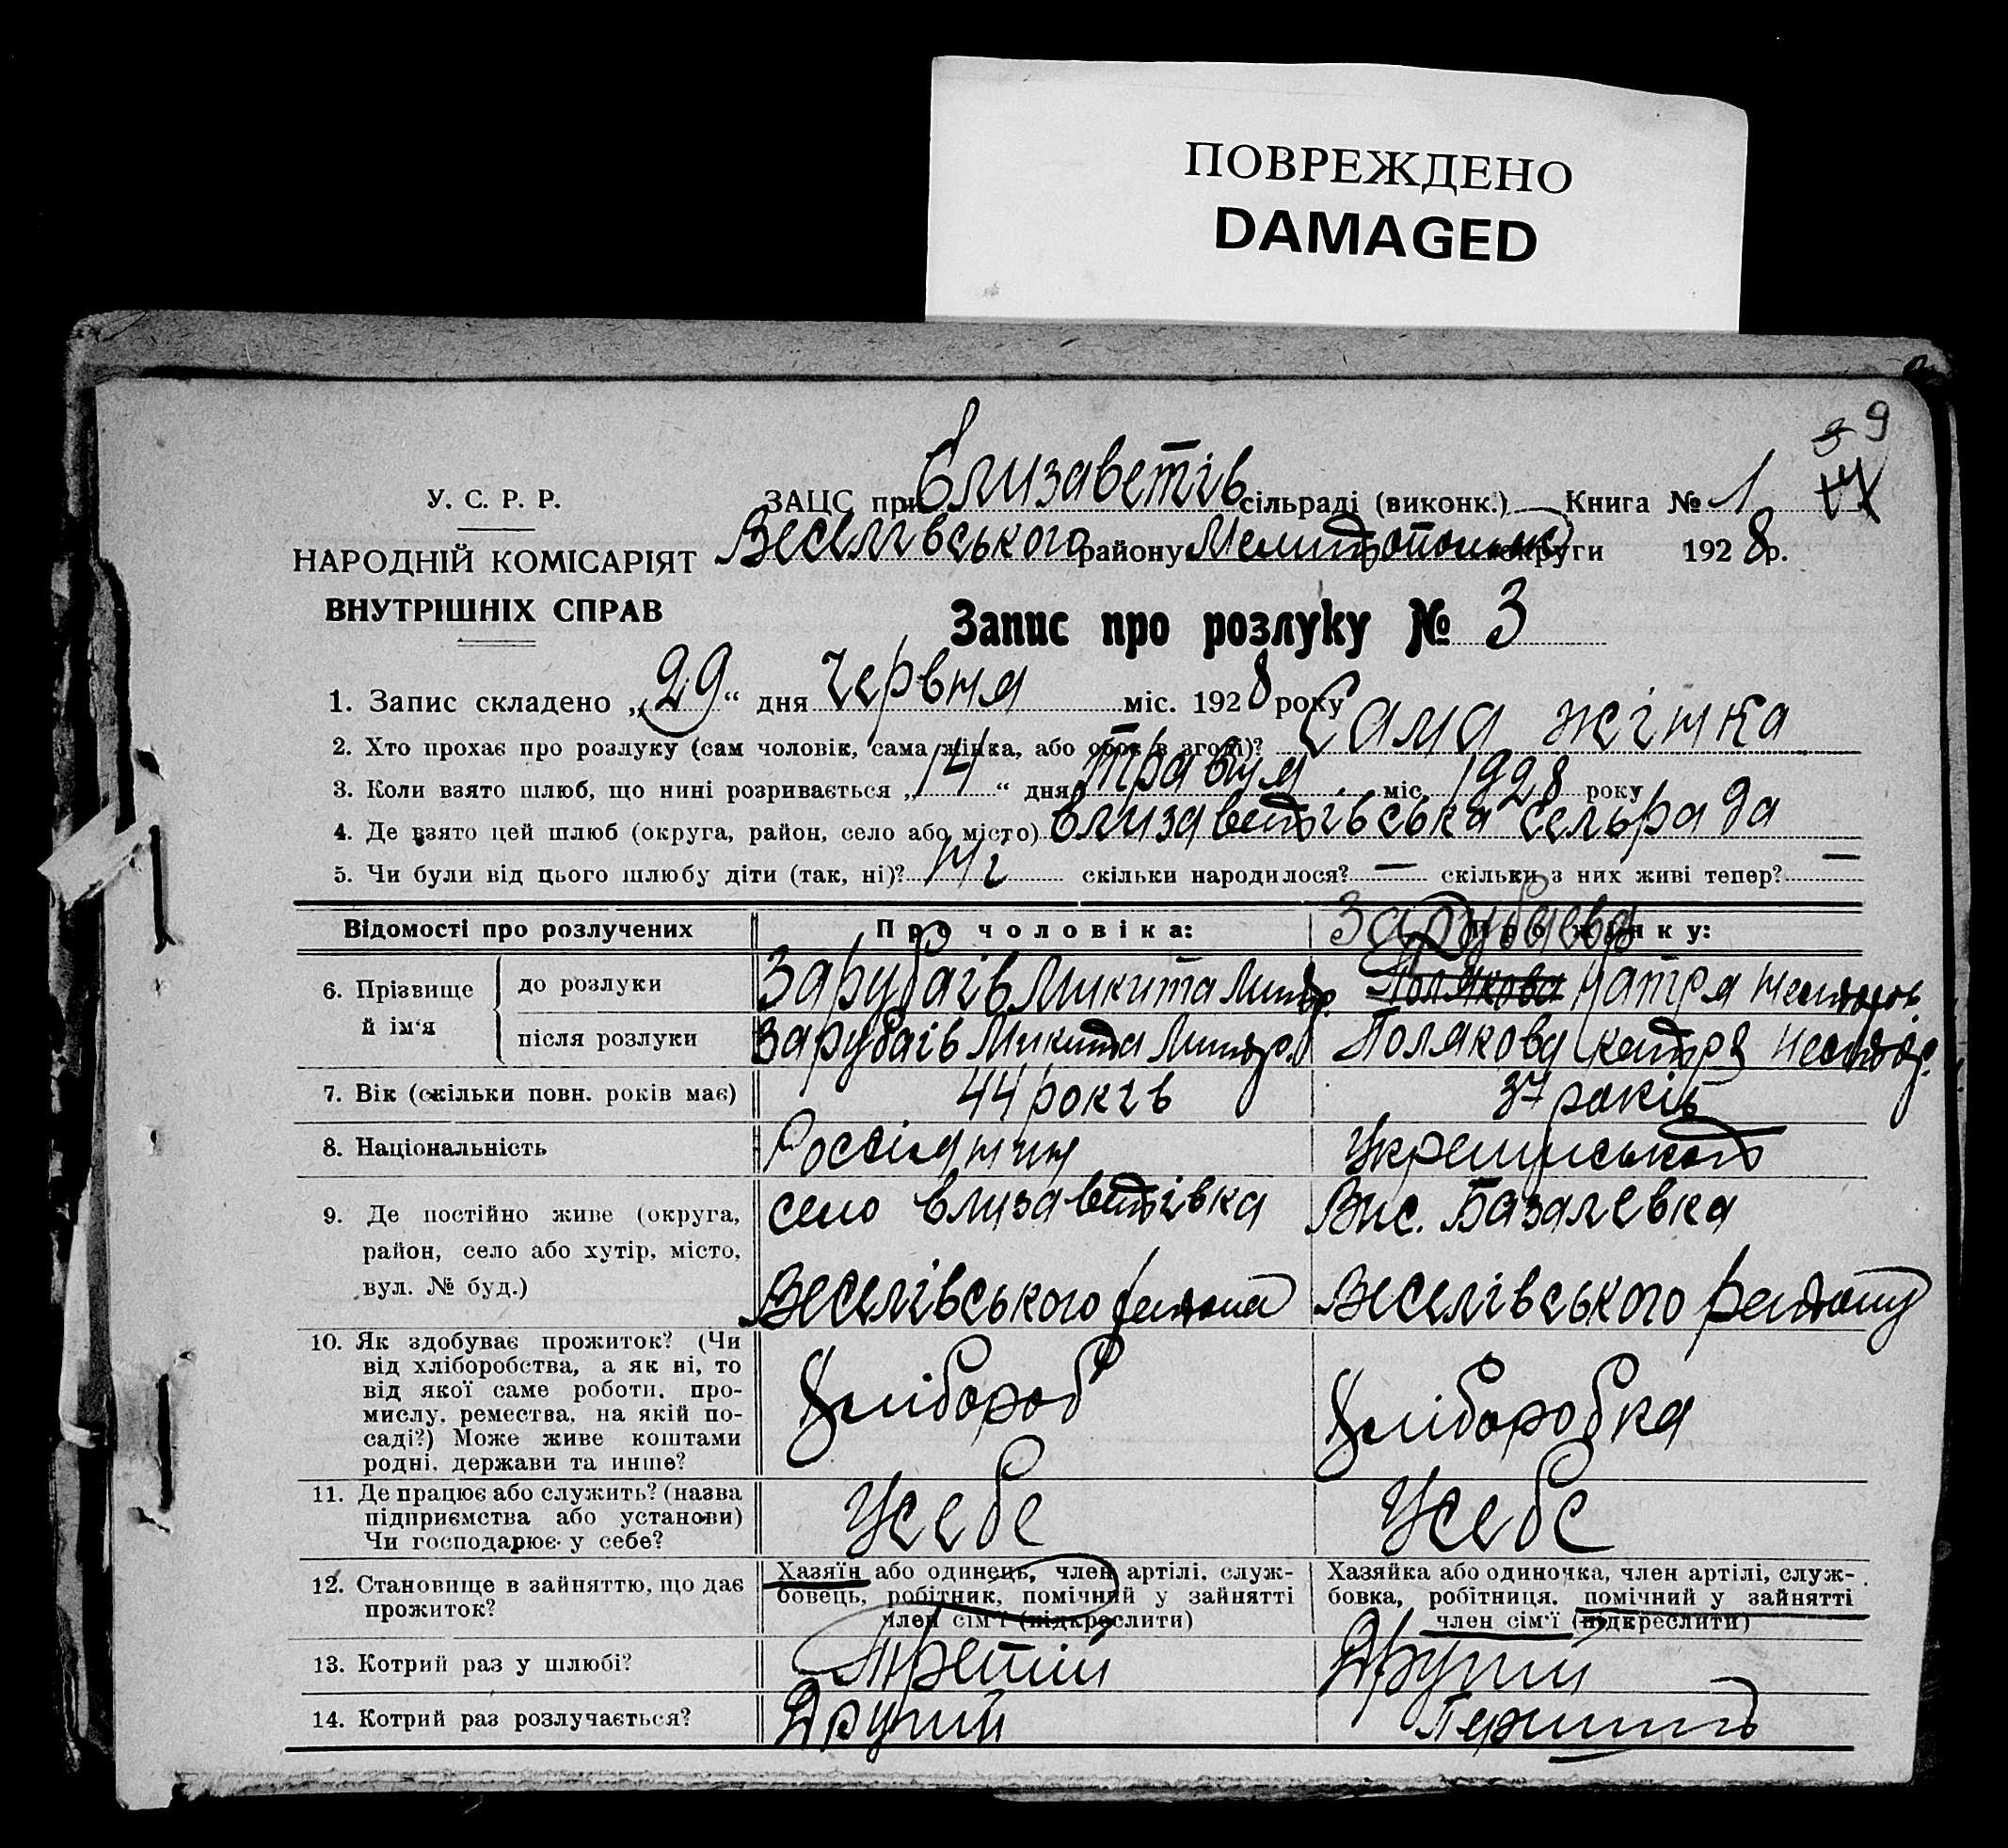 ПОВРЕЖДЕНО
DAMAGED
9
У. С. Р. Р.
ЗАЦС при Єлизаветів сільраді (виконк.) Книга № 1
НАРОДНІЙ КОМІСАРІЯТ
ВНУТРІШНІХ СПРАВ
Веселівського району Мелитопольск округи 1928 р.
Запис про розлуку № 3
1. Запис складено „29“ дня червня міс. 1928 року
2. Хто прохає про розлуку (сам чоловік, сама жінка, або обоє в згоді)? Сама жінка
3. Коли взято шлюб, що нині розривається „14“ дня травня міс. 1928 року
4. Де взято цей шлюб (округа, район, село або місто) Єлизаветівська сельрада
5. Чи були від цього шлюбу діти (так, ні)? Ні скільки народилося? — скільки з них живі тепер? —
Відомості про розлучених
Про чоловіка:
Про жінку:
Зарубаєва
6. Прізвище й ім‘я
до розлуки
Зарубаів Микита Митр.
Полякова Нестор.
після розлуки
Зарубаів Микита Митр.
Полякова Нестор.
7. Вік (скільки повн. років має)
44 років
37 років
8. Національність
Россіянин
Українська
9. Де постійно живе (округа,
район, село або хутір, місто,
вул. № буд.)
село Єлизаветівка
Веселівського району
Вис. Базалевка
Веселівського району
10. Як здобуває прожиток? (Чи
від хліборобства, а як ні, то
від якої саме роботи, про-
мислу, ремества, на якій по-
саді?) Може живе коштами
родні, держави та инше?
Хлібороб
Хліборобка
11. Де працює або служить? (назва
підприємства або установи)
Чи господарює у себе?
У себе
У себе
12. Становище в зайняттю, що дає
прожиток?
Хазяїн або одинець, член артілі, служ-
бовець, робітник, помічний у зайнятті
член сім‘ї (підкреслити)
Хазяйка або одиночка, член артілі, служ-
бовка, робітниця, помічний у зайнятті
член сім‘ї (підкреслити)
13. Котрий раз у шлюбі?
Третій
Другий
14. Котрий раз розлучається?
Другий
Перший